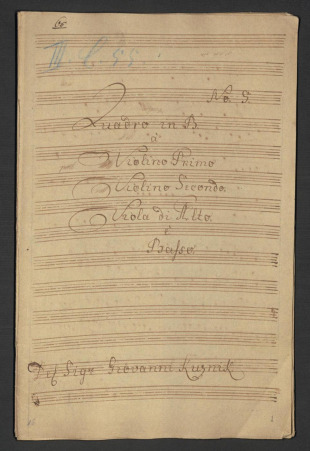 III. L. 55
No. 5
Quadro in B
à
Violino Primo
Violino Secondo.
Viola di Alto.
è
Basso.
Del Sigr Giovanni Kuznik
1